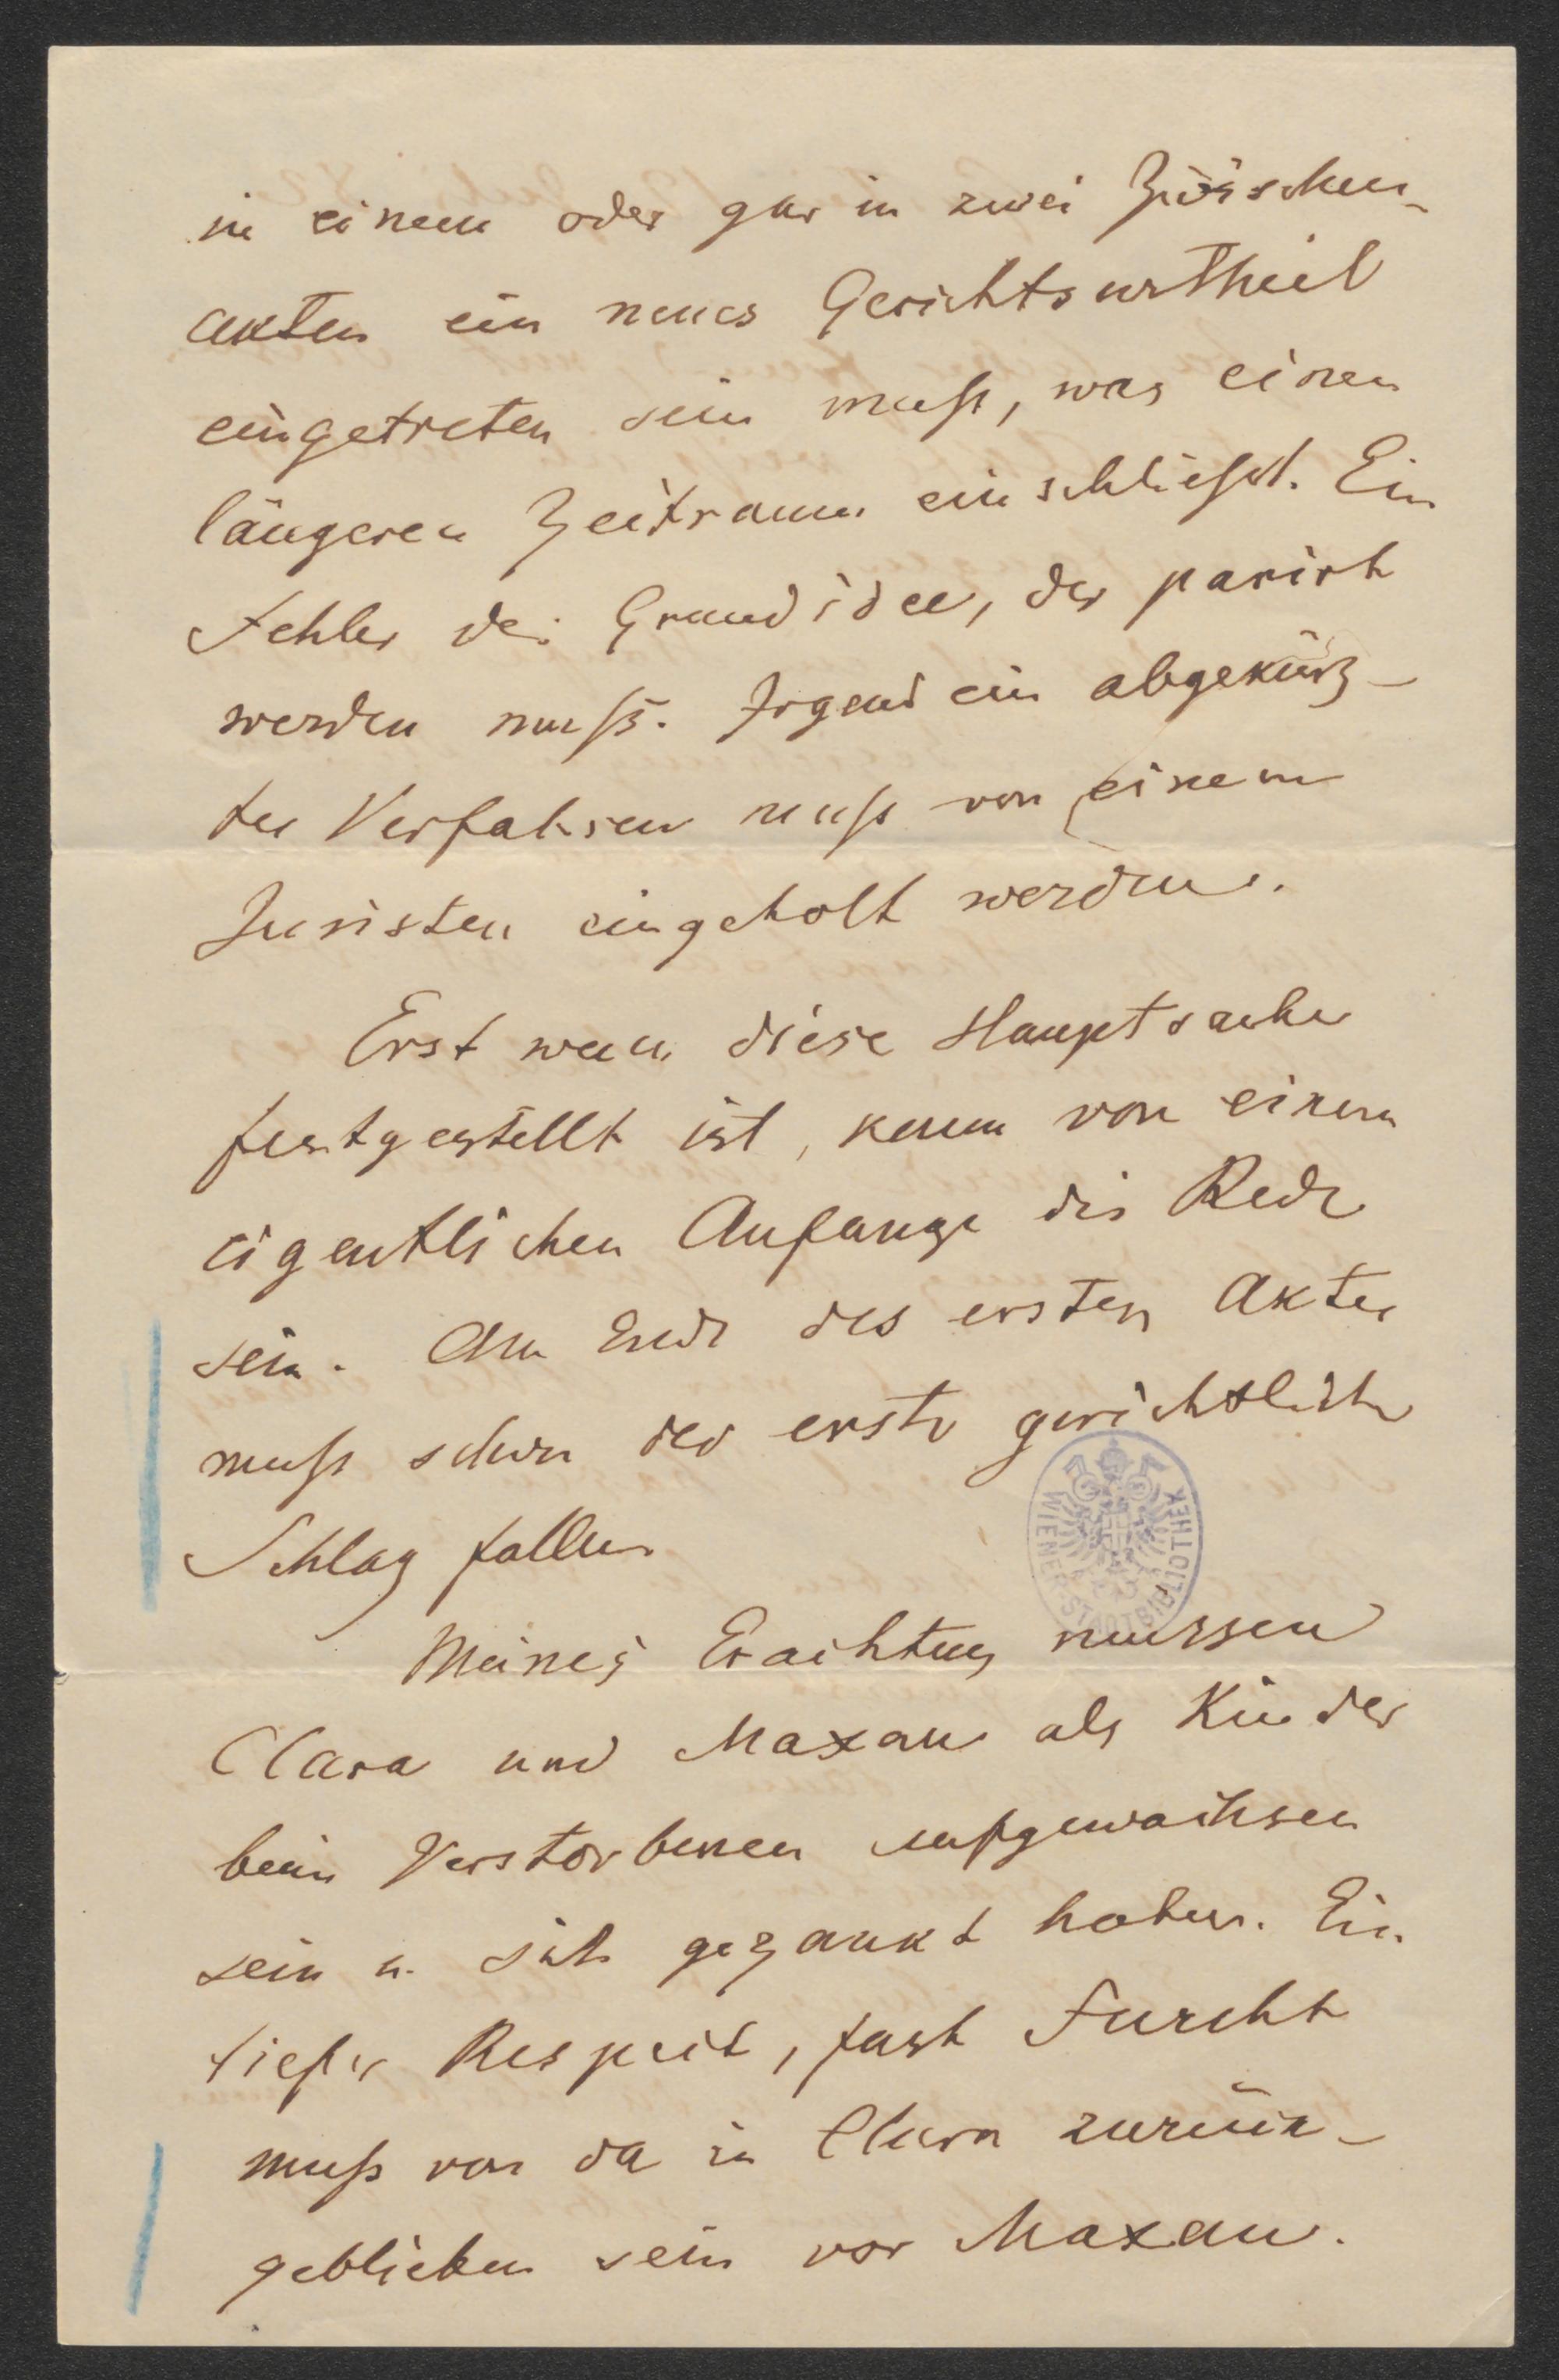 in einem oder gar in zwei Zwischen-
akten ein neues Gerichtsurtheil
eingetreten sein muß, was einen
längeren Zeitraum einschließt. Ein
Fehler der Grundidee, der parirt
werden muß. Irgend ein abgekürz-
tes Verfahren muß von einem
Juristen eingeholt werden.
Erst wenn diese Hauptsache
festgestellt ist, kann von einem
eigentlichen Anfange die Rede
sein. Am Ende des ersten Aktes
muß schon der erste gerichtliche
Schlag fallen
Meines Erachtens müssen
Clara und Maxan als Kinder
beim Verstorbenen aufgewachsen
sein u. sich gezankt haben. Ein
tiefer Respect, fast Furcht
muß von da in Clara zurück-
geblieben sein vor Maxan.
WIENER STADTBIBLIOTHEK